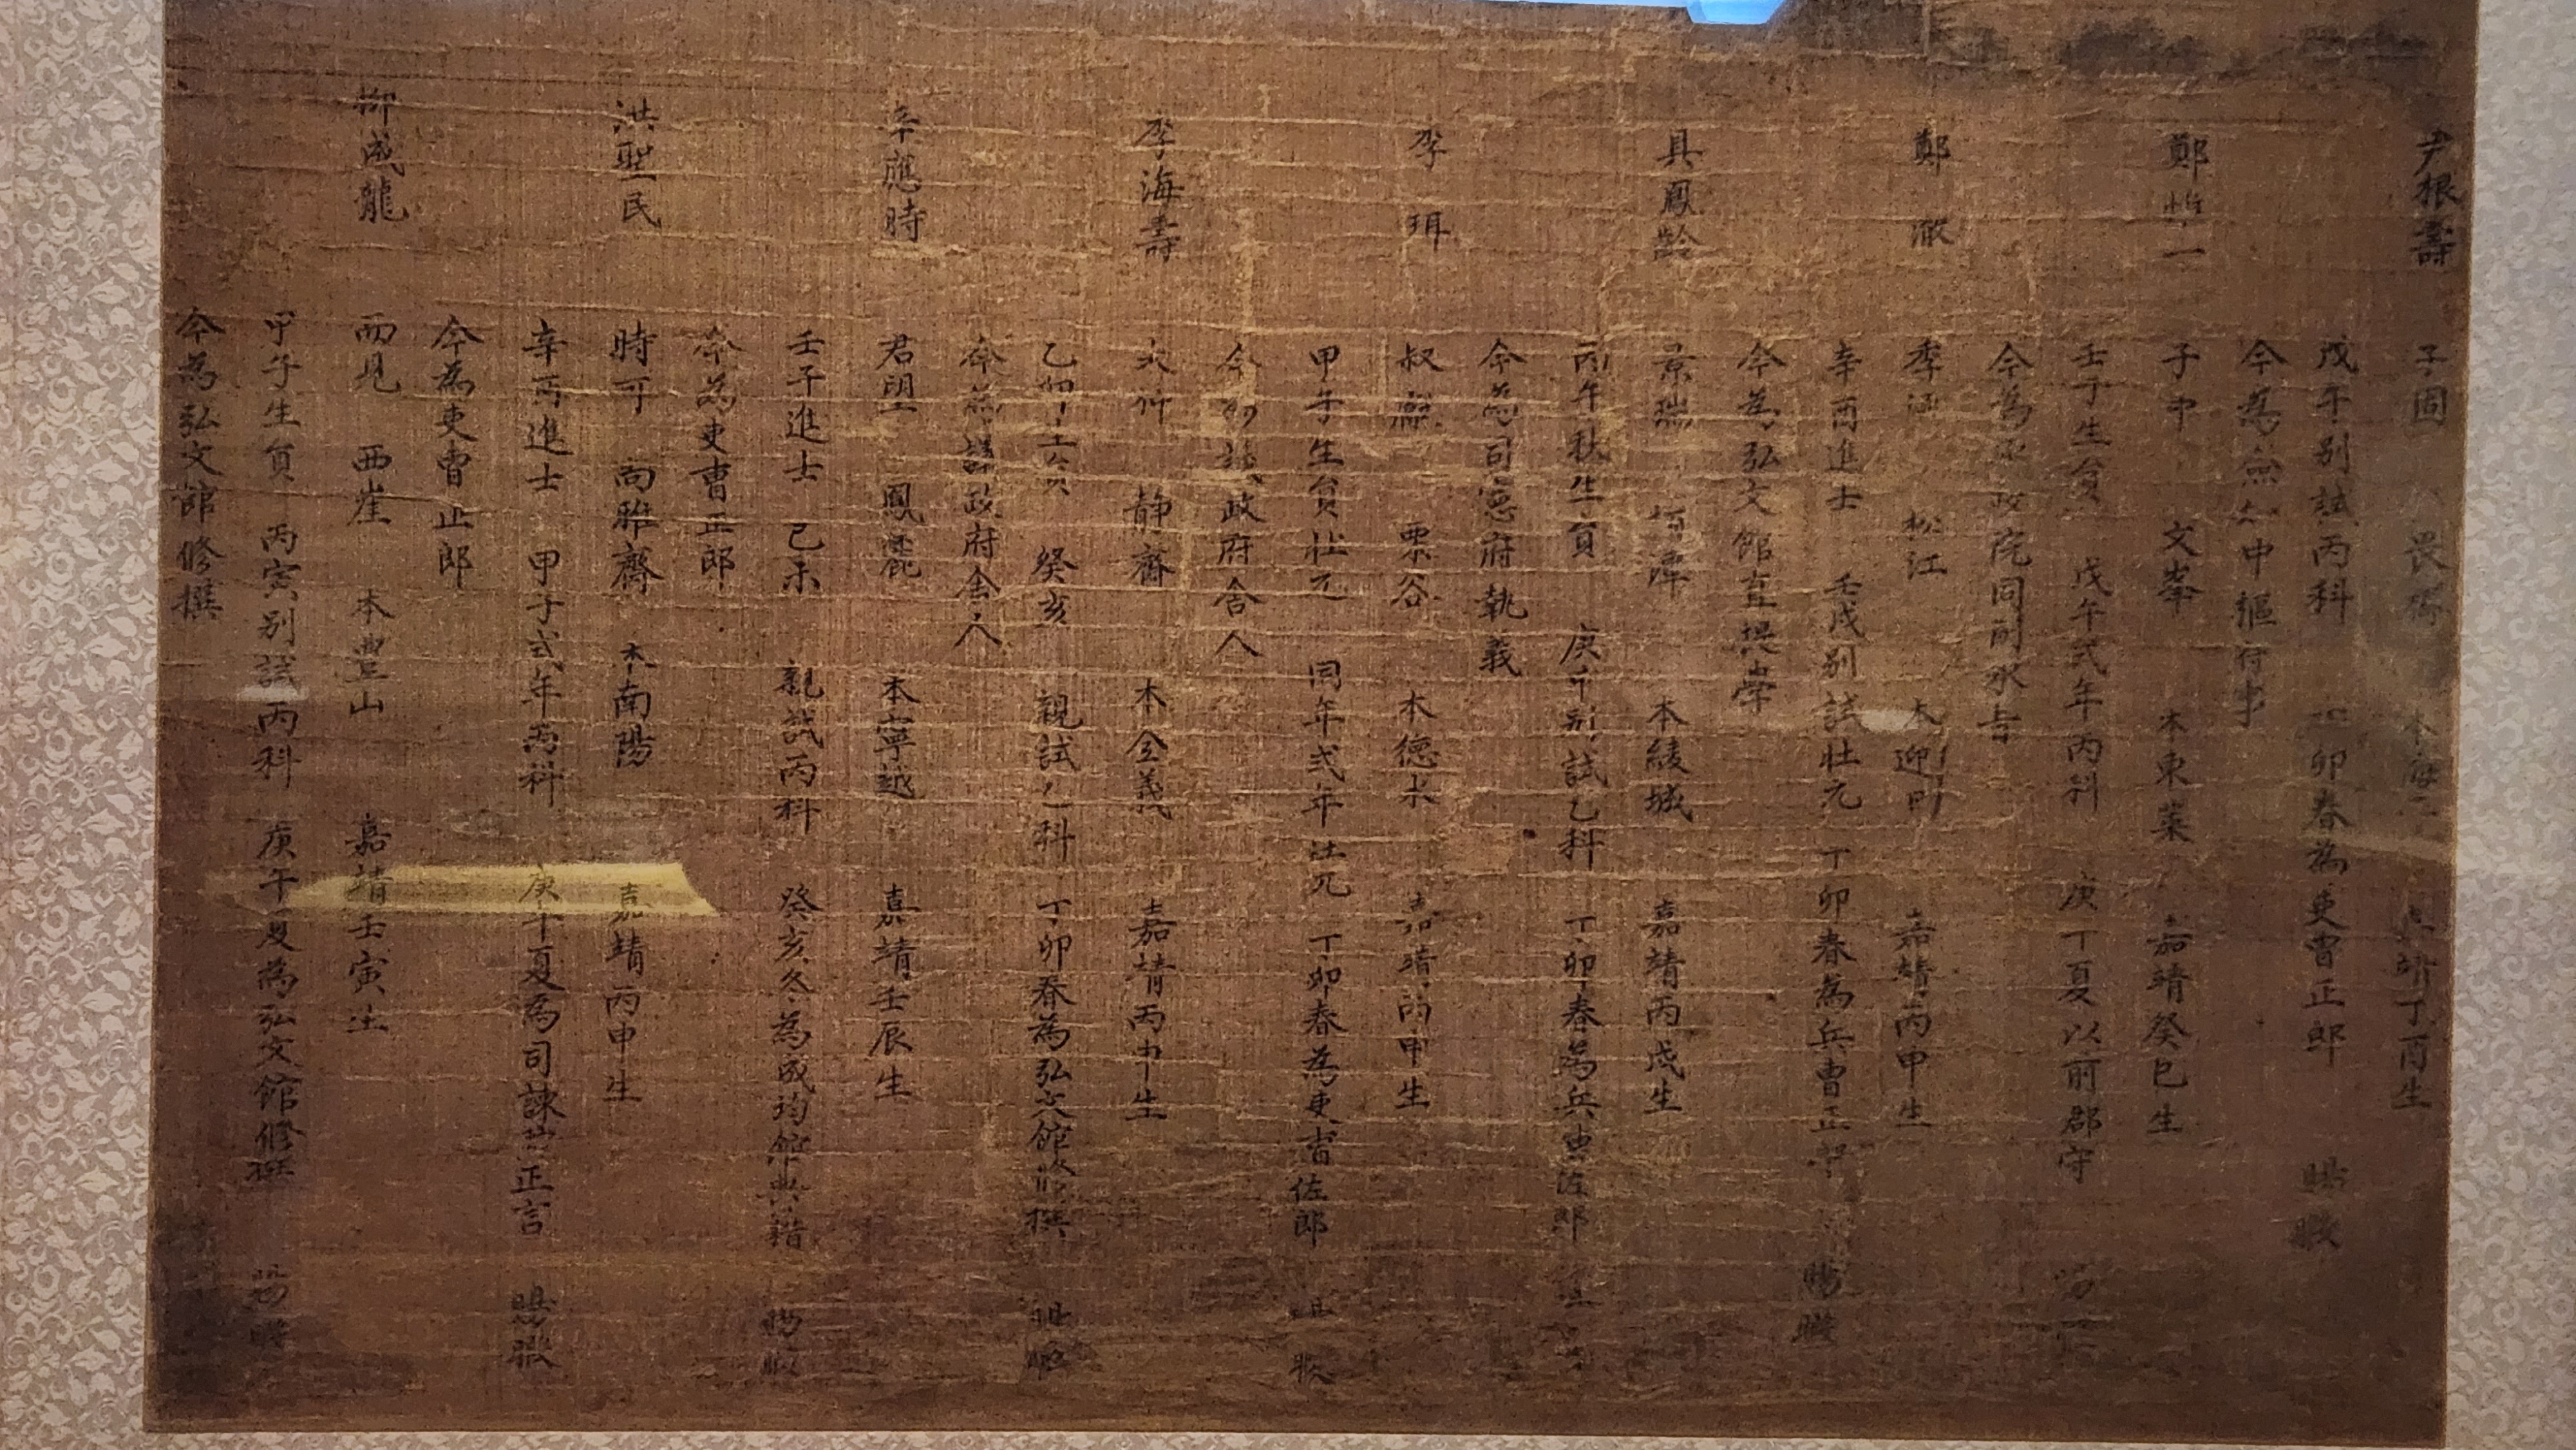 尹根壽
子固 畏 本海 靖丁酉生
戊午別試丙科 卯春為吏曹正郎 賜暇
今為僉知中樞府事
鄭惟一
子中 文峯 本東萊 嘉靖癸巳生
壬子生員 戊午式年丙科 庚午夏以前郡守 賜
今為承政院同副承旨
鄭澈
季涵 松江 本迎日 嘉靖丙申生
辛酉進士 壬戌別試壯元 丁卯春為兵曹正郎 賜暇
今為弘文館直提學
具鳳齡
景瑞 栢潭 本綾城 嘉靖丙戌生
丙午秋生員 庚申別試乙科 丁卯春為兵曹佐郎
今為司憲府執義
李珥
叔獻 栗谷 本德水 嘉靖丙申生
甲子生員壯元 同年式年壯元 丁卯春為吏曹佐郎 賜暇
今為議政府舍人
李海壽
大仲 靜齋 本全義 嘉靖丙申生
乙卯生員 癸亥 親試乙科 丁卯春為弘文館修撰 賜暇
今為議政府舍人
辛應時
君望 鳳麓 本寧越 嘉靖壬辰生
壬子進士 己未 親試丙科 癸亥冬為成均館典籍 賜暇
今為吏曹正郎
洪聖民
時可 尚雅齋 本南陽 嘉靖丙申生
辛酉進士 甲子式年丙科 庚午夏為司諫院正言 賜暇
今為吏曹正郎
柳成龍
而見 西崖 本豊山 嘉靖壬寅生
甲子生員 丙寅別試丙科 庚午夏為弘文館修撰 賜暇
今為弘文館修撰